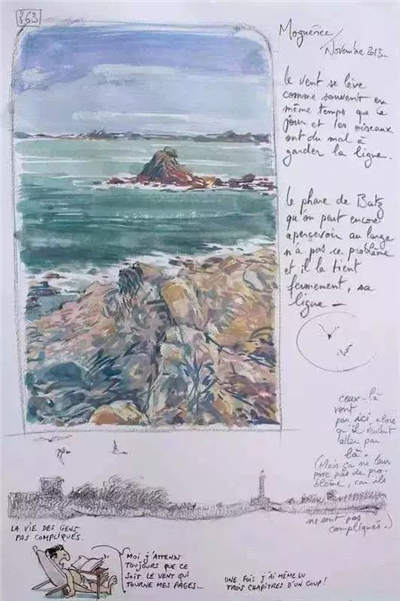 853
Moguériec
Novembre 2013
le vent se lève
comme souvent en
même temps que le
jour et les oiseaux
ont du mal à
garder la ligne.
le phare de Batz
qu'on peut encore
apercevoir au large
n'a pas ce problème
et il la tient
fermement, sa
ligne —
ceux-là
vont
par ici alors
qu'ils veulent
aller par
là.
(Mais ça ne leur
pose pas de pro-
blème, car ils
ne sont pas
compliqués.)
LA VIE DES GENS
PAS COMPLIQUÉS.
MOI J'ATTENDS
TOUJOURS QUE CE
SOIT LE VENT QUI
TOURNE MES PAGES...
UNE FOIS J'AI MÊME LU
TROIS CHAPITRES D'UN COUP!